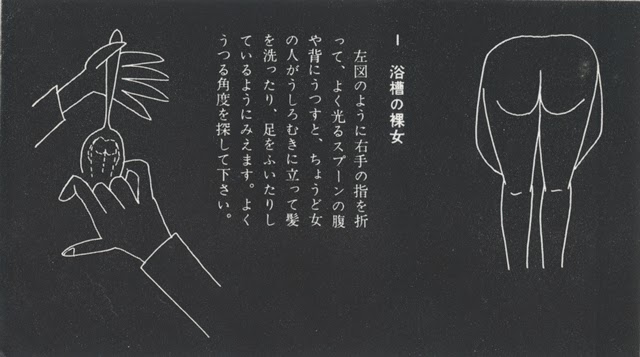 I 浴槽の裸女
左図のように右手の指を折
って、よく光るスプーンの腹
や背にうつすと、ちょうど女
の人がうしろむきに立って髪
を洗ったり、足をふいたりし
ているようにみえます。よく
うつる角度を探して下さい。